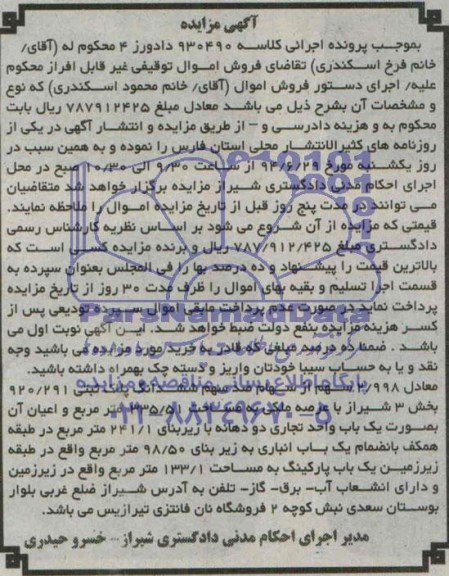 آگهی مزایده
بموجب پرونده اجرائی کلاسه ۹۳۰۴۹۰ دادورز ۴ محکوم له (آقای/
خانم فرخ اسکندری) تقاضای فروش اموال توقیفی غیر قابل افراز محکوم
علیه/ اجرای دستور فروش اموال (آقای/ خانم محمود اسکندری) که نوع
و مشخصات آن بشرح ذیل می باشد معادل مبلغ ۷۸۷۹۱۲۴۲۵ ریال بابت
محکوم به و هزینه دادرسی و – از طریق مزایده و انتشار آگهی در یکی از
روزنامه های کثیرالانتشار محلی استان فارس را نموده و به همین سبب در
روز یکشنبه مورخ ۹۴/۶/۲۹ از ساعت ۹/۳۰ الی ۱۰/۳۰ صبح در محل
اجرای احکام مدنی دادگستری شیراز مزایده برگزار خواهد شد متقاضیان
می توانند در مدت پنج روز قبل از تاریخ مزایده اموال را ملاحظه نمایند.
قیمتی که مزایده از آن شروع می شود بر اساس نظریه کارشناس رسمی
دادگستری مبلغ ۷۸۷/۹۱۲/۴۲۵ ریال و برنده مزایده کسی است که
بالاترین قیمت را پیشنهاد و ده درصد بها را فی المجلس بعنوان سپرده به
قسمت اجرا تسلیم و بقیه بهای اموال را ظرف مدت ۳۰ روز از تاریخ مزایده
پرداخت نماید در صورت عدم پرداخت مابقی اموال سپرده تودیعی پس از
کسر هزینه مزایده بنفع دولت ضبط خواهد شد. این آگهی نوبت اول می
باشد. ضمنا ده درصد مبلغی که قادر به خرید مورد مزایده می باشید وجه
نقد و یا به حساب سیبا خودتان واریز و دسته چک بهمراه داشته باشید.
معادل ۲/۹۹۸ سهم از سهام صد سهم ششدانگ پلاک ثبتی ۹۲۰/۲۹۱
بخش ۳ شیراز با عرصه ملک به مساحت ۳۳۵/۵۱ متر مربع و اعیان آن
بصورت یک باب واحد تجاری دو دهانه با زیربنای ۲۴۱/۱ متر مربع در طبقه
همکف بانضمام یک باب انباری به زیر بنای ۹۸/۵۰ متر مربع واقع در طبقه
زیرزمین یک باب پارکینگ به مساحت ۱۳۳/۱ متر مربع واقع در زیرزمین
و دارای انشعاب آب- برق- گاز- تلفن به آدرس شیراز ضلع غربی بلوار
بوستان سعدی نبش کوچه ۲ فروشگاه نان فانتزی تیرازیس می باشد.
مدیر اجرای احکام مدنی دادگستری شیراز – خسرو حیدری
ParsNamadData
پایگاه اطلاع رسانی مناقصه و مزایده